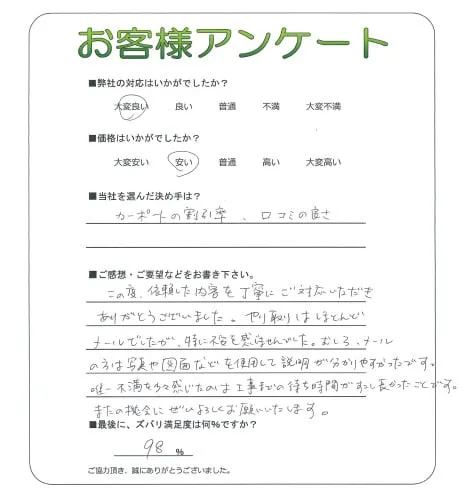 お客様アンケート
■弊社の対応はいかがでしたか？
大変良い 良い 普通 不満 大変不満
■価格はいかがでしたか？
大変安い 安い 普通 高い 大変高い
■当社を選んだ決め手は？
カーポートの割引率、口コミの良さ
■ご感想・ご要望などをお書き下さい。
この度、依頼した内容を丁寧にご対応いただき
ありがとうございました。やり取りはほとんど
メールでしたが、特に不容を感ませんでした。むしろ、メール
の方は写真や図面などを使用して説明が分かりやすかったです。
唯一不満を少々感じたのは工事までの待ち時間がすこし長かったことです。
またの機会にぜひよろしくお願いいたします。
■最後に、ズバリ満足度は何%ですか？
98 %
ご協力頂き、誠にありがとうございました。